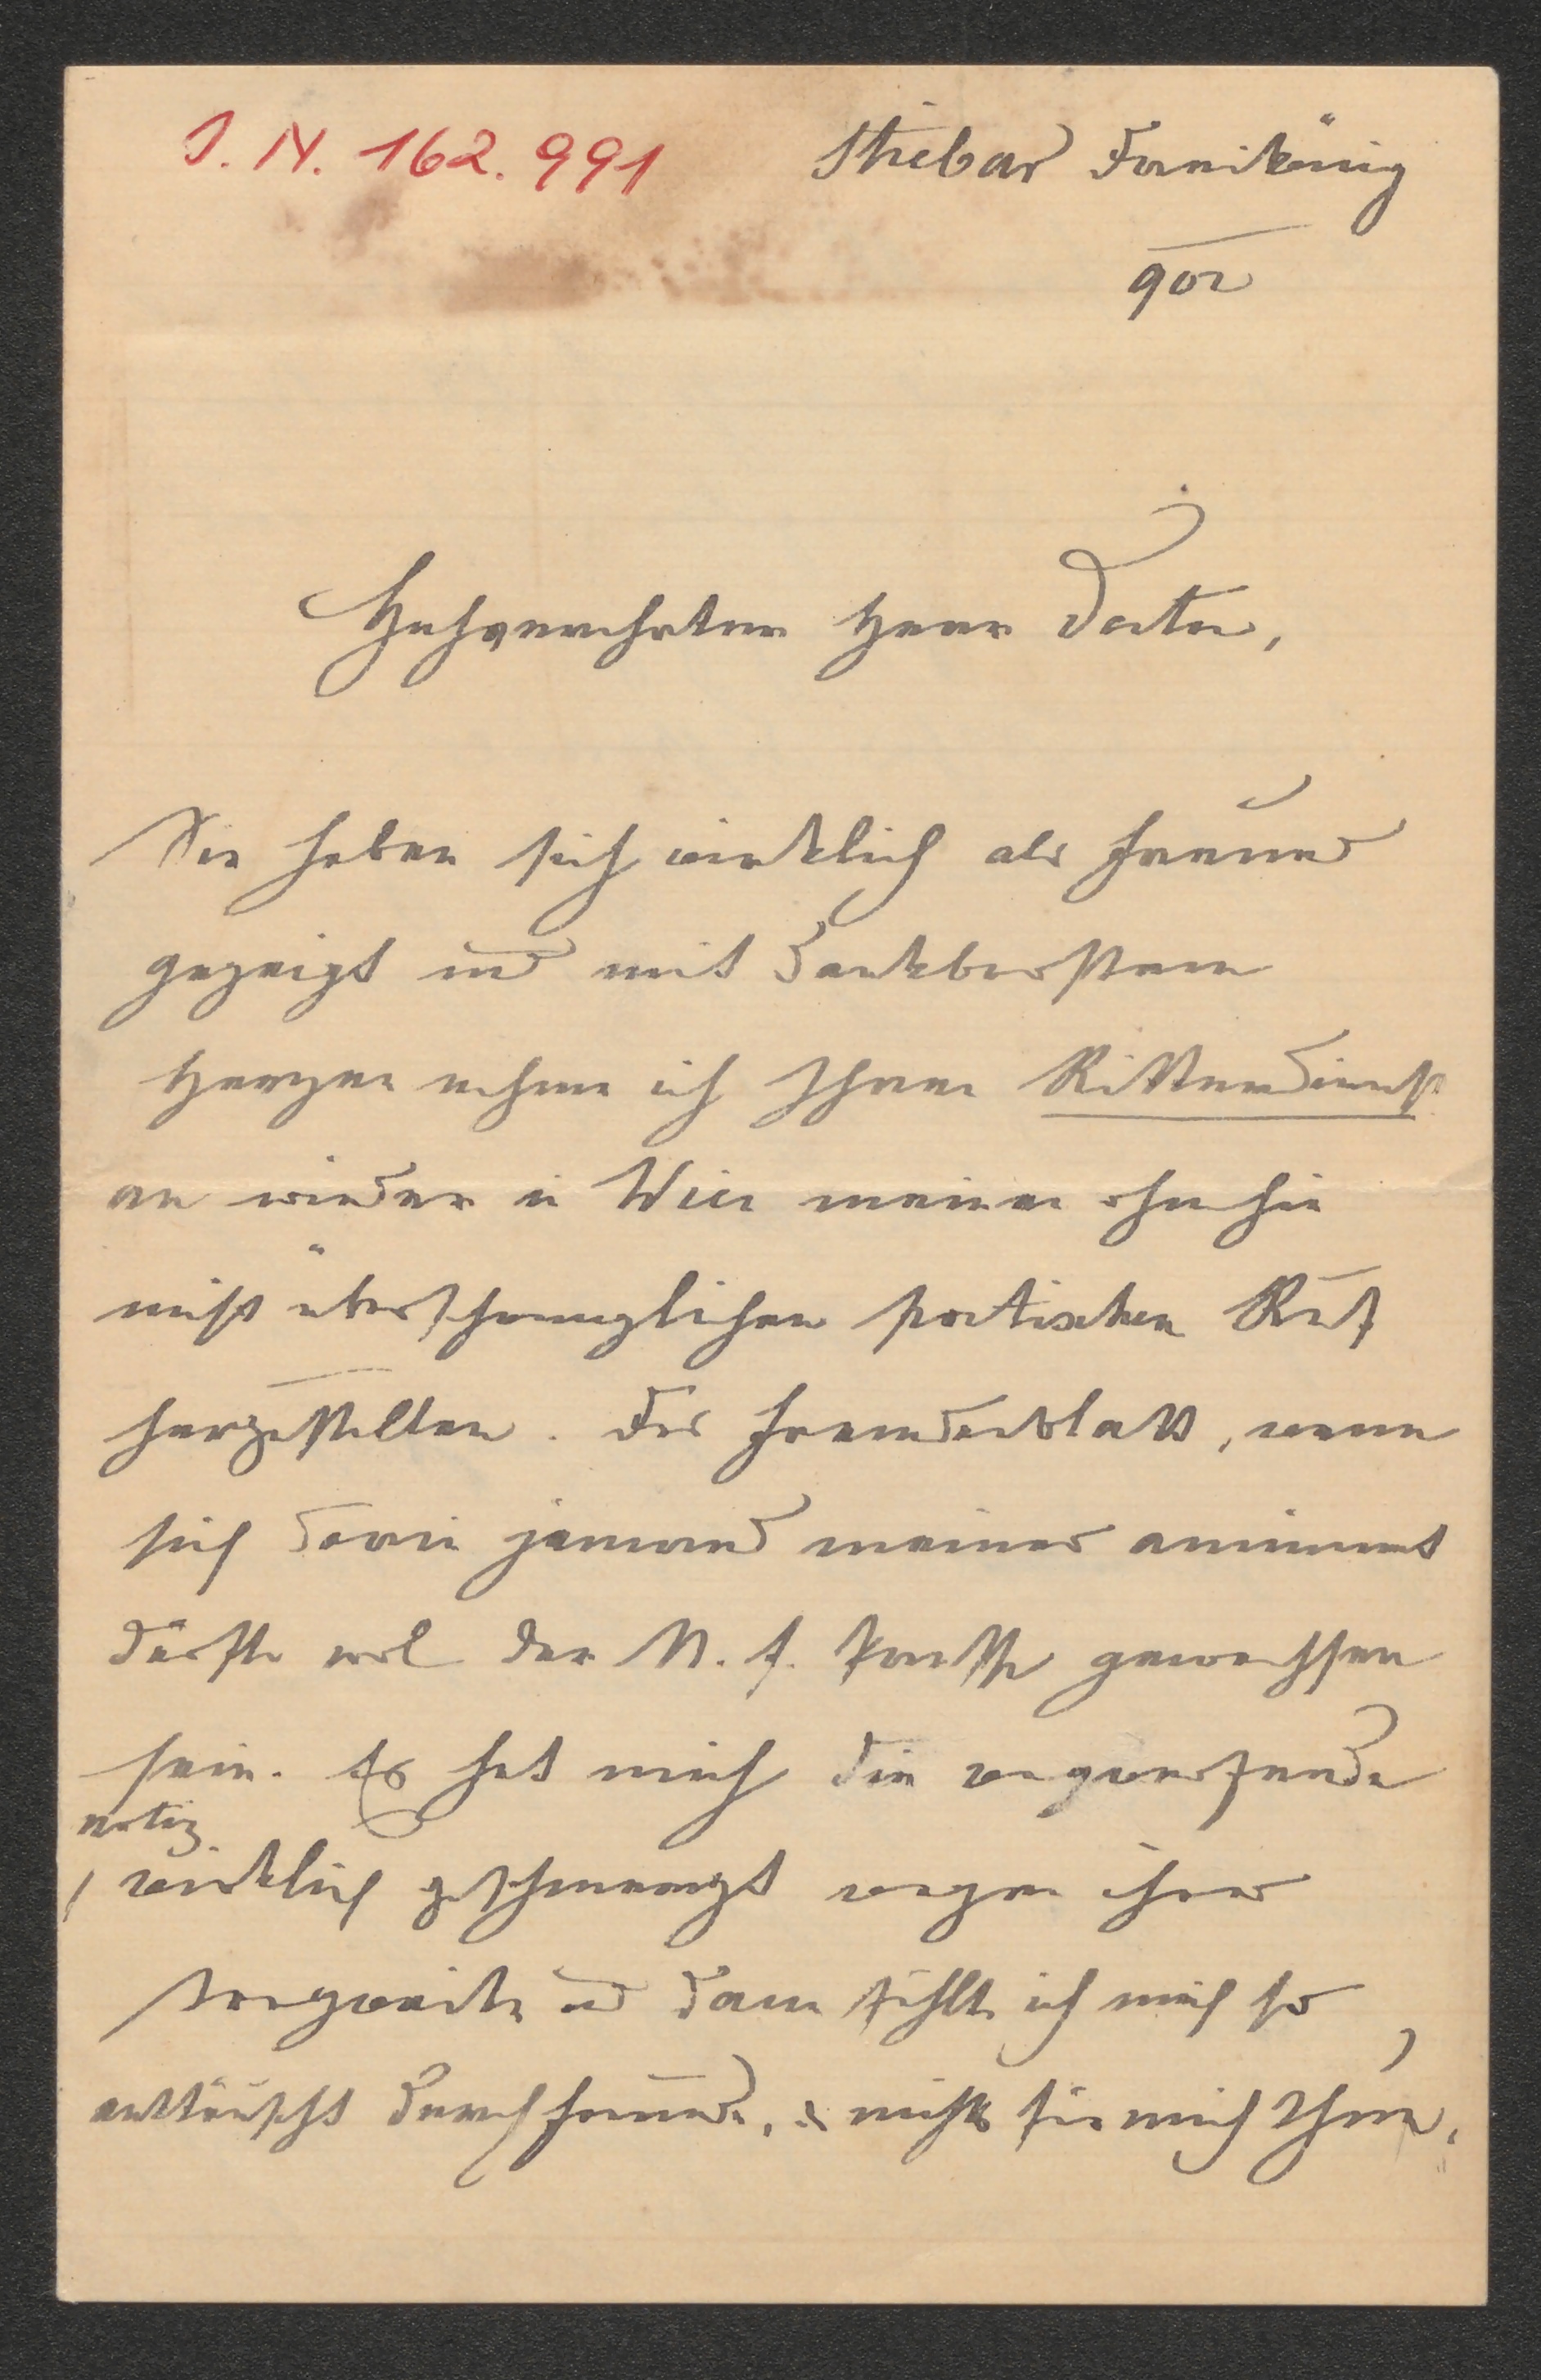 J. N. 162.991
Stiebar Dornikönig
902
Hochverehrter Herr Doctor,
Sie haben sich wirklich als Freund
gezeigt und mit dankbarstem
Herzen nehme ich Ihren Ritterdienst
an wieder in Wien meinen ohnehin
nicht überschwenglichen poetischen Ruf
herzustellen. Das Fremdenblatt, wenn
sich darin jemand meiner annimmt
dürfte wol der N. f. Presse gewachsen
sein. Es hat mich die wegwerfende
notiz
wirklich geschmerzt wegen ihrer
Tragweite und dann fühlte ich mich so
enttäuscht durch Freunde, die nichts für mich thun,